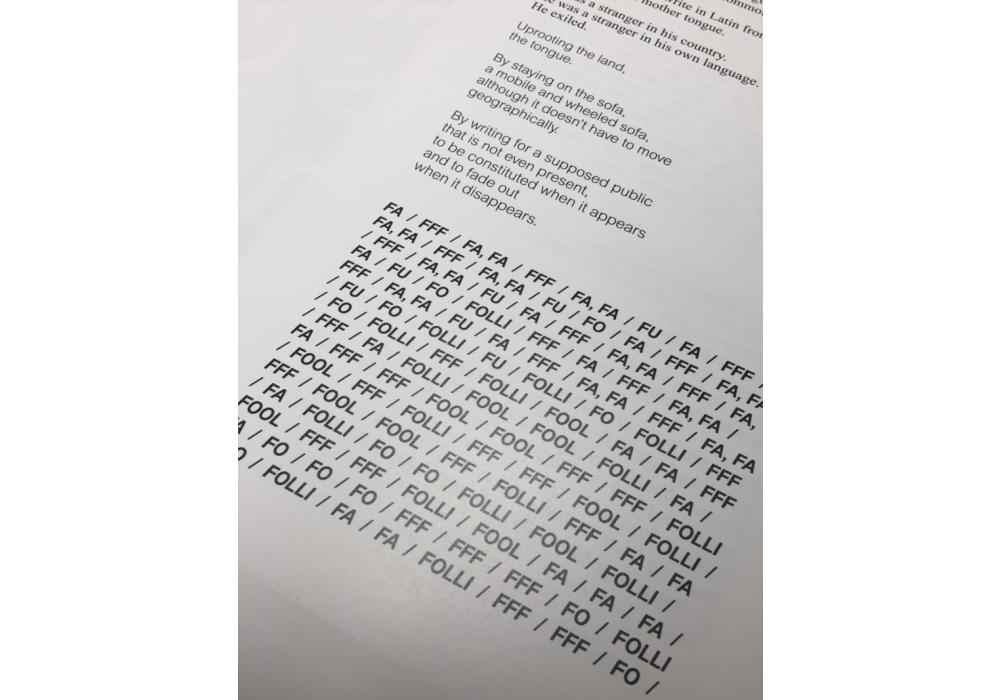 write in Latin
mother tongue.
a stranger in his country.
He was a stranger in his own language.
He exiled.
Uprooting the land,
the tongue.
By staying on the sofa,
a mobile and wheeled sofa,
although it doesn't have to move
geographically.
By writing for a supposed public
that is not even present,
to be constituted when it appears
and to fade out
when it disappears.
FA / FFF / FA, FA / FFF / FA, FA / FU / FA / FFF /
FA, FA / FFF / FA, FA / FU / FO / FA / FFF / FA, FA
/ FFF / FA, FA / FU / FA / FFF / FA, FA / FFF / FA,
FA / FU / FO / FOLLI / FFF / FA / FFF / FA, FA /
FFF / FA, FA / FU / FA / FFF / FA, FA / FFF / FA, FA
/ FU / FO / FOLLI / FU / FOLLI / FO / FOLLI / FFF
/ FO / FOLLI / FFF / FOLLI / FOOL / FA / FA / FFF
/ FFF / FA / FOLLI / FOOL / FOOL / FOLLI / FA /
FA / FFF / FFF / FOOL / FOOL / FFF / FFF / FOLLI
/ FOOL / FFF / FOLLI / FFF / FFF / FOOL / FOLLI /
FFF / FOOL / FOOL / FFF / FOLLI / FFF / FA / FA
/ FA / FOLLI / FO / FO / FOLLI / FOOL / FOLLI /
FOOL / FFF / FFF / FOLLI / FOOL / FA / FA / FA /
/ FO / FO / FO / FFF / FFF / FFF / FO / FOLLI
/ FOLLI / FA / FA / FOLLI / FFF / FFF / FO /